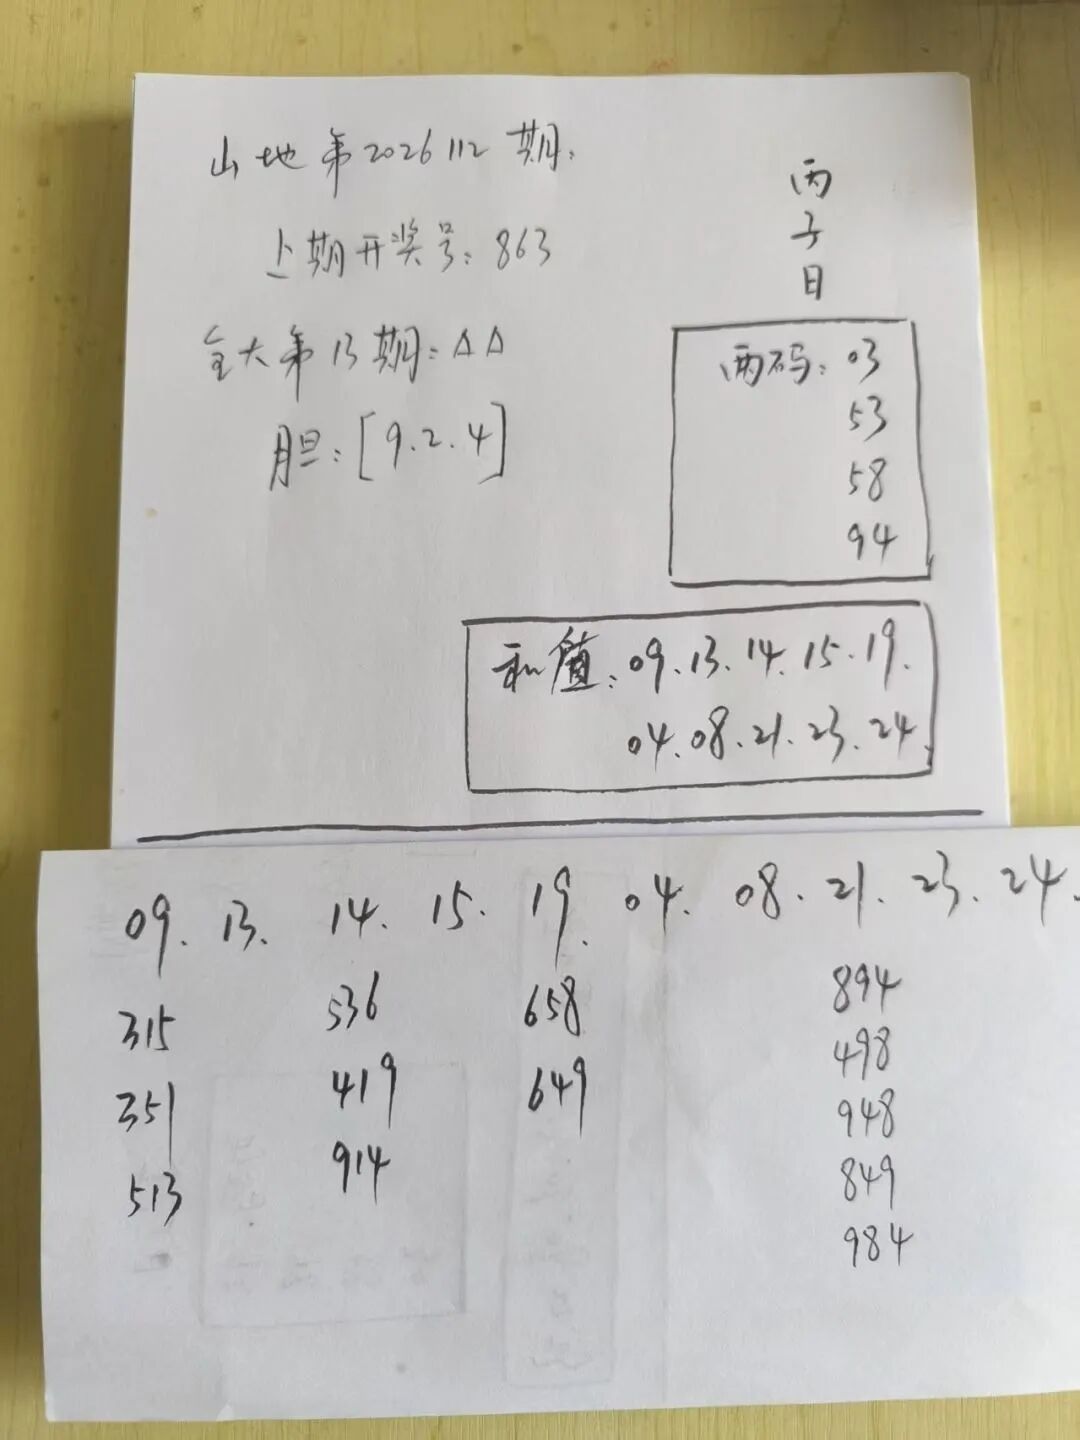 山地第2026112期:
丙子日
上期开奖号:863
全大第13期:△△
胆:[9.2.4]
两码:03
53
58
94
和值:09.13.14.15.19.
04.08.21.23.24.
09. 13. 14. 15. 19. 04. 08. 21. 23. 24.
315 536 658 894
351 419 649 498
513 914 948
849
984